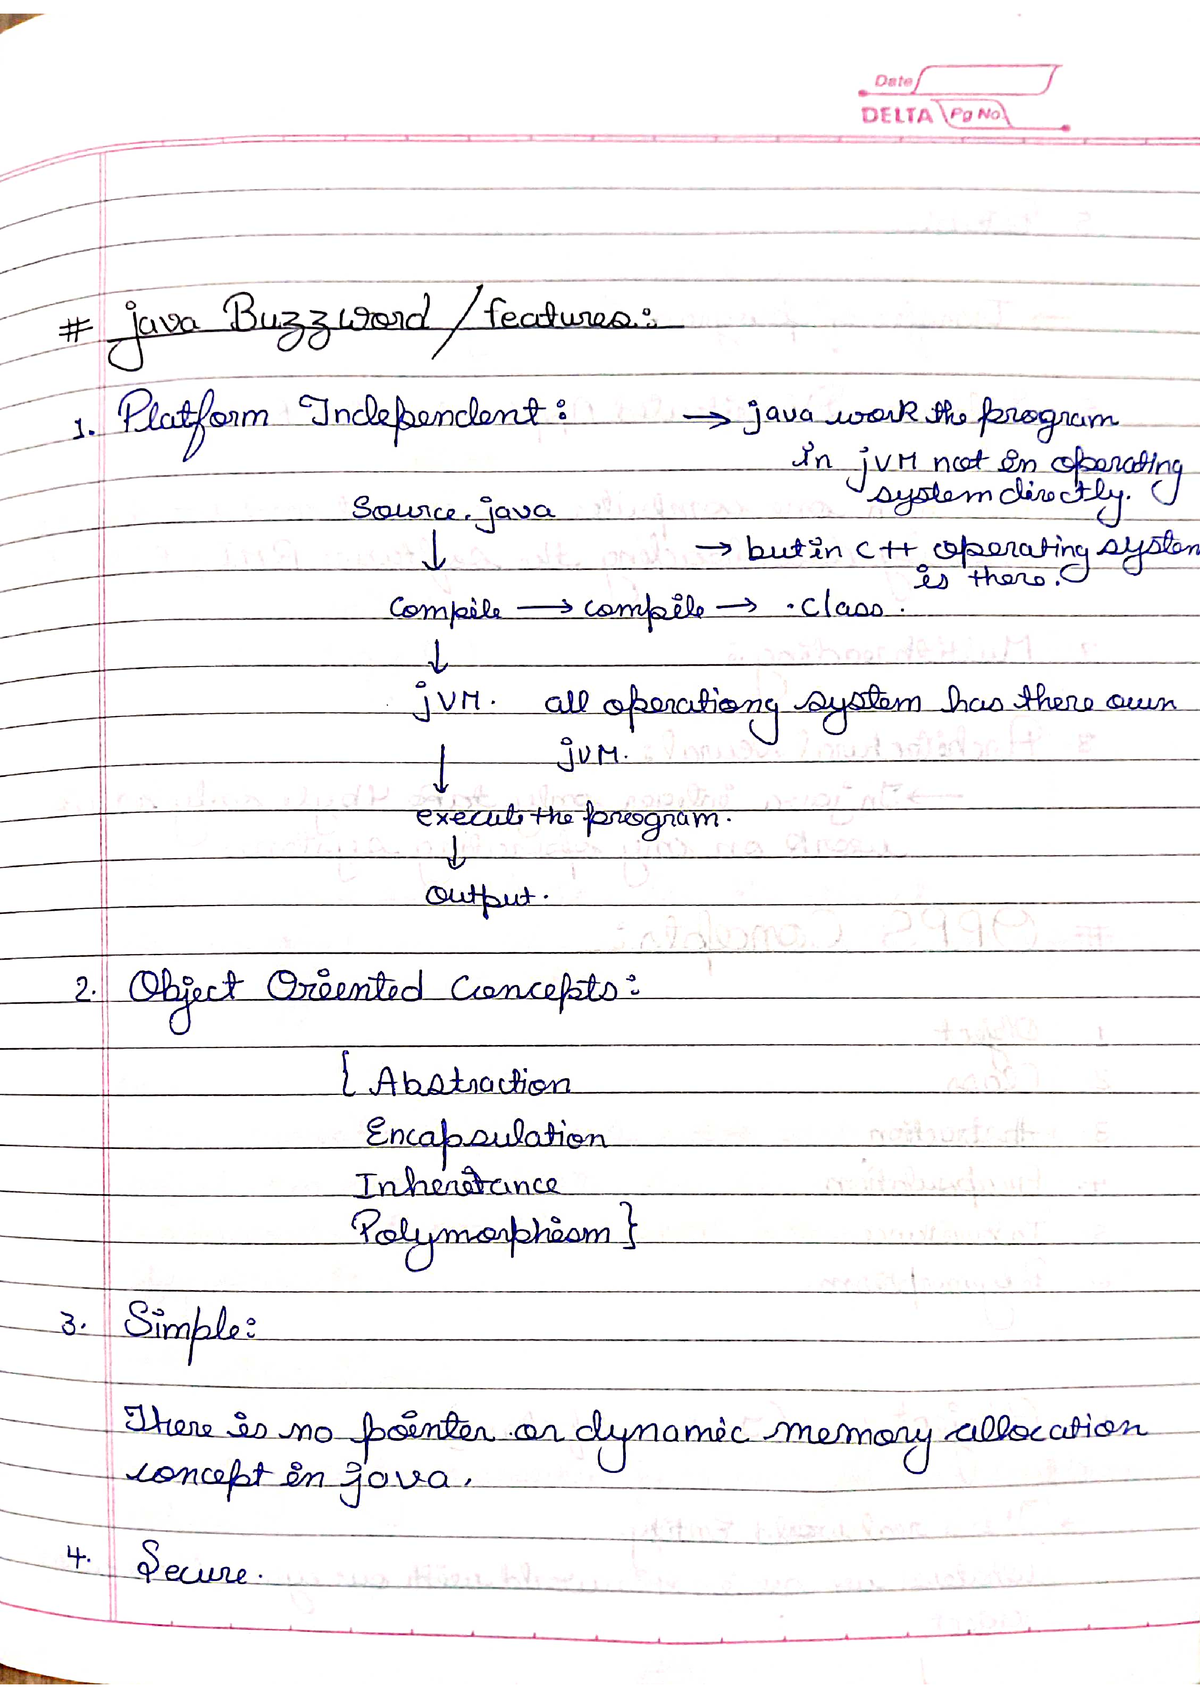 Date
DELTA Pg No
# java Buzzword / features:
1. Platform Independent: → java work the program
in jVM not in operating
system directly.
Source.java
↓ → but in c++ operating system
is there.
Compile → compile → .class.
↓
jVM. all operationg system has there own
jVM.
↓
execute the program.
↓
output.
2. Object Oriented Concepts:
{ Abstraction
Encapsulation
Inheritance
Polymorphism }
3. Simple:
There is no pointer or dynamic memory allocation
concept in java.
4. Secure.